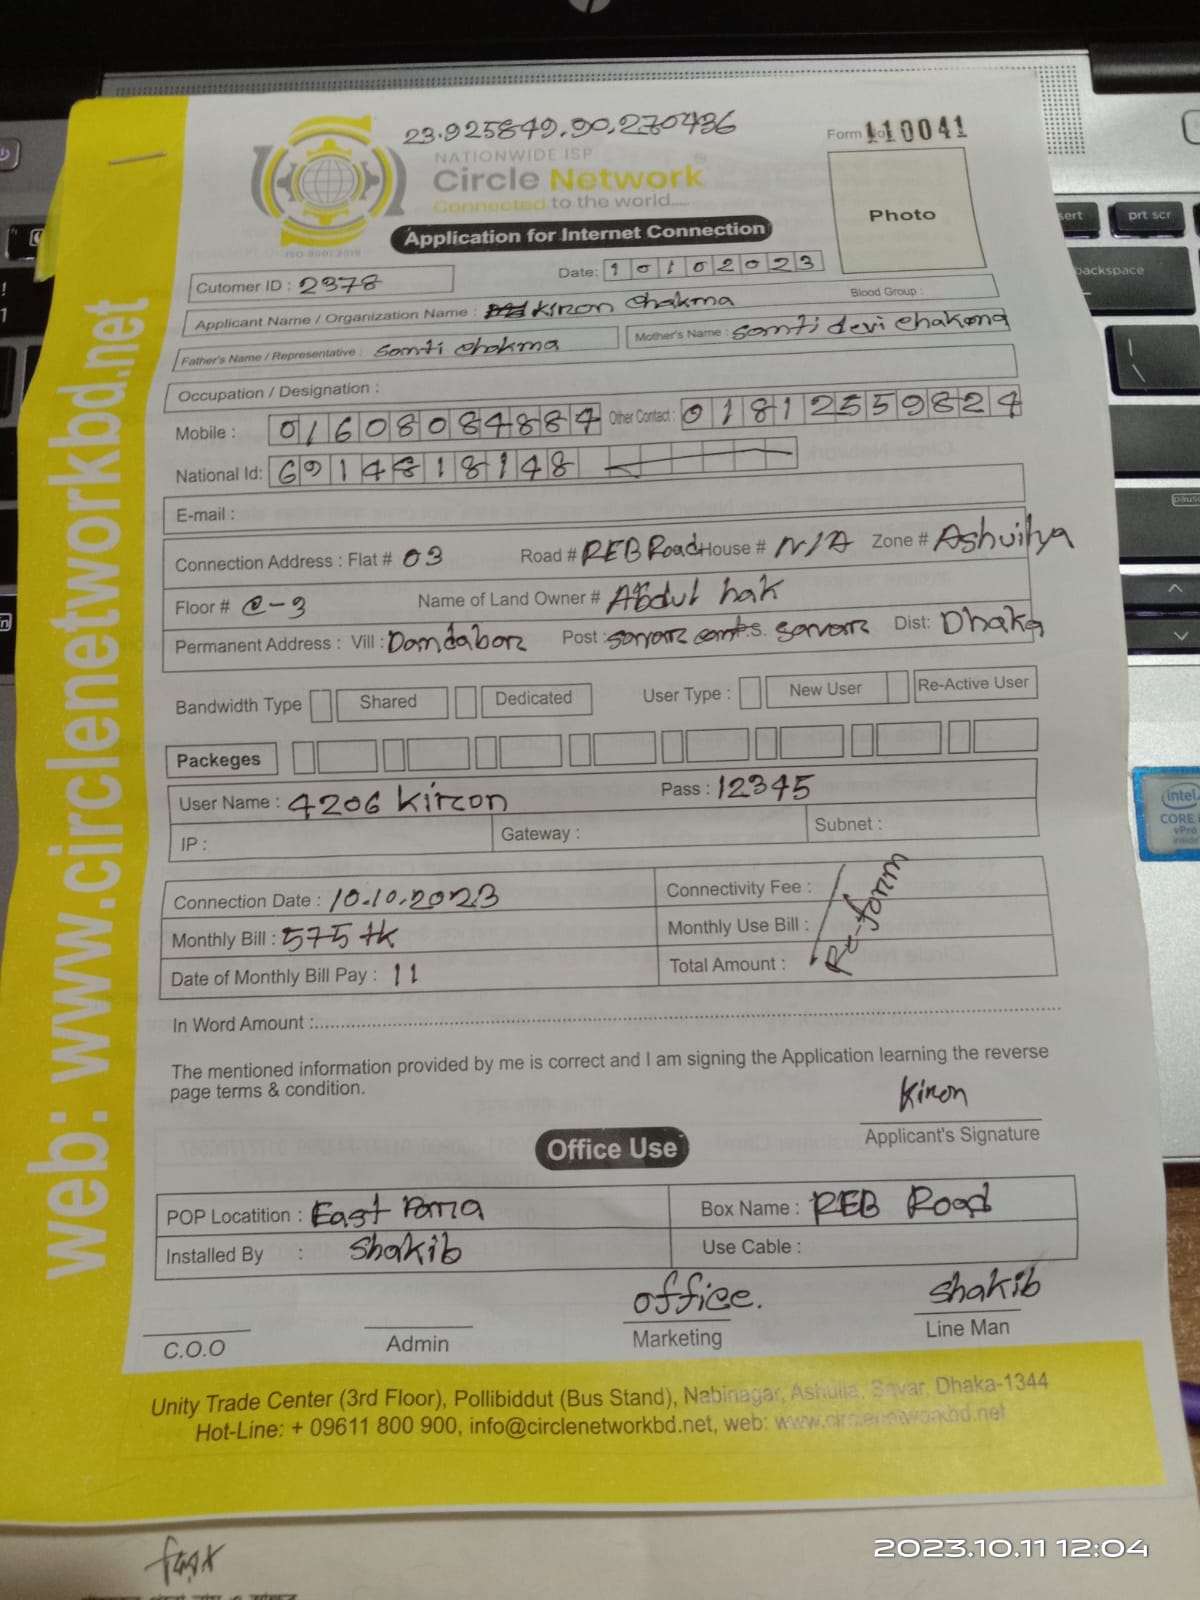 23.925849,90.270436
Form No: 110041
NATIONWIDE ISP
Circle Network
Connected to the world.....
ISO 9001:2015
Photo
Application for Internet Connection
Cutomer ID : 2378
Date: 10102023
Applicant Name / Organization Name : kiron chakma
Blood Group :
Father's Name / Representative : Somti chakma
Mother's Name : Somti devi chakma
Occupation / Designation :
Mobile : 01608084884 Other Contact : 01812559824
National Id: 6914818148
E-mail :
Connection Address : Flat # 03 Road # REB Road House # N/A Zone # Ashuilya
Floor # @-3 Name of Land Owner # Abdul hak
Permanent Address : Vill : Dandabor Post : savar cant P.S. savar Dist: Dhaka
Bandwidth Type Shared Dedicated User Type : New User Re-Active User
Packeges
User Name : 4206 kiron Pass : 12345
IP : Gateway : Subnet :
Connection Date : 10.10.2023 Connectivity Fee :
Monthly Bill : 575 tk Monthly Use Bill : Re-form
Date of Monthly Bill Pay : 11 Total Amount :
In Word Amount :
The mentioned information provided by me is correct and I am signing the Application learning the reverse
page terms & condition.
Kiron
Applicant's Signature
Office Use
POP Locatition : East Para Box Name : REB Road
Installed By : Shakib Use Cable :
office. Shakib
C.O.O Admin Marketing Line Man
Unity Trade Center (3rd Floor), Pollibiddut (Bus Stand), Nabinagar, Ashulia, Savar, Dhaka-1344
Hot-Line: + 09611 800 900, info@circlenetworkbd.net, web: www.circlenetworkbd.net
web: www.circlenetworkbd.net
prt scr
backspace
intel
CORE i
vPro
inside
2023.10.11 12:04